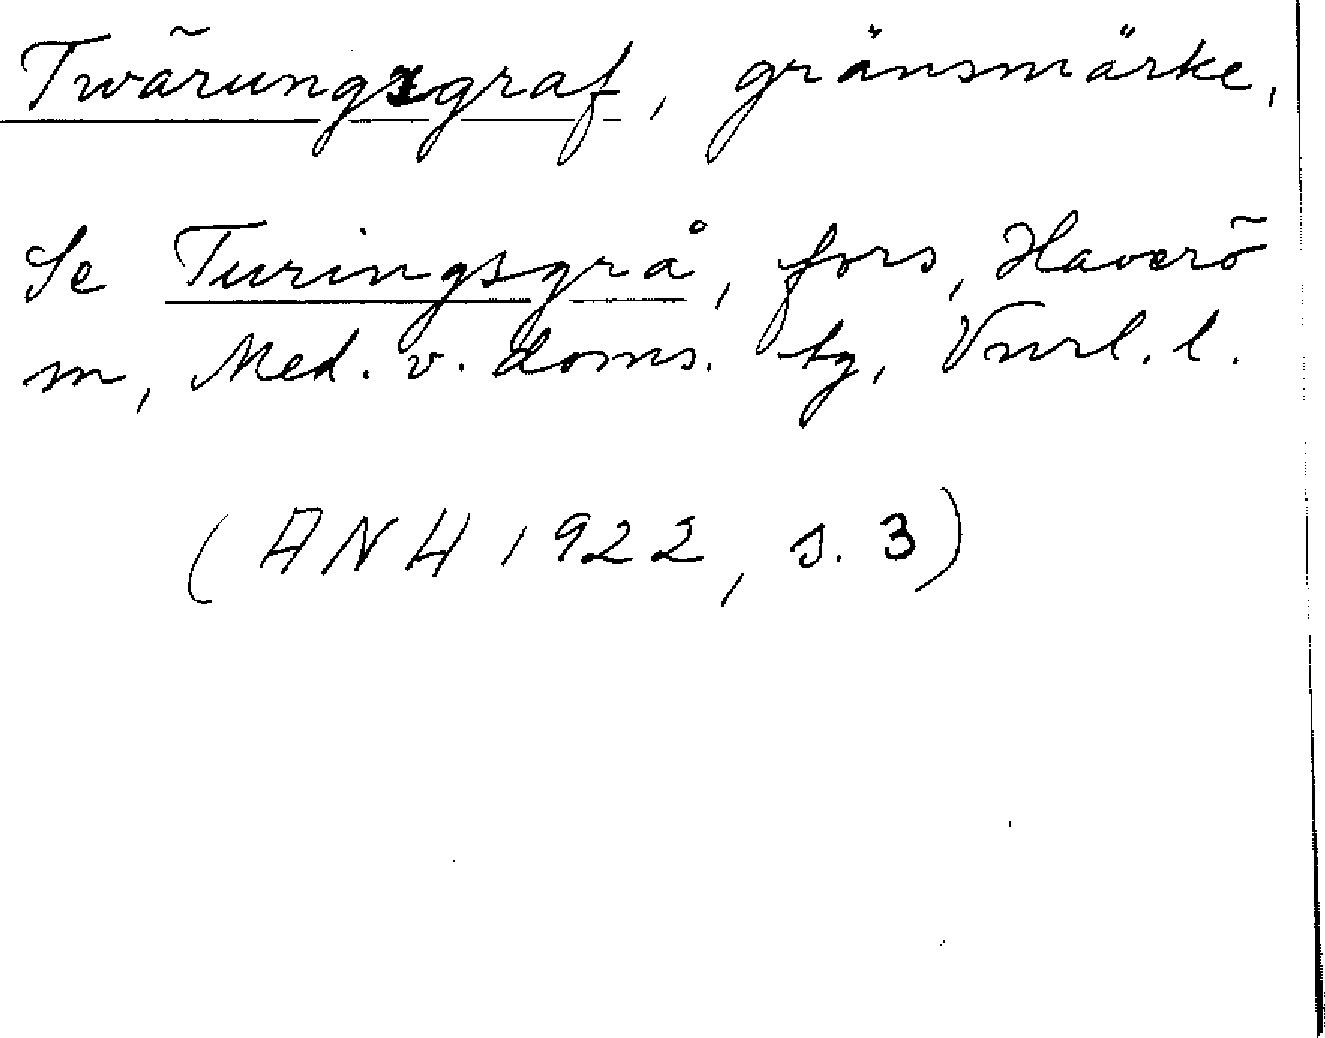 Twärungsgraf, gränsmärke,
Se Turingsgrå, fors, Haverö
sn, Med. v. doms. tg, Vnrl. l.
(ANH 1922, s. 3)